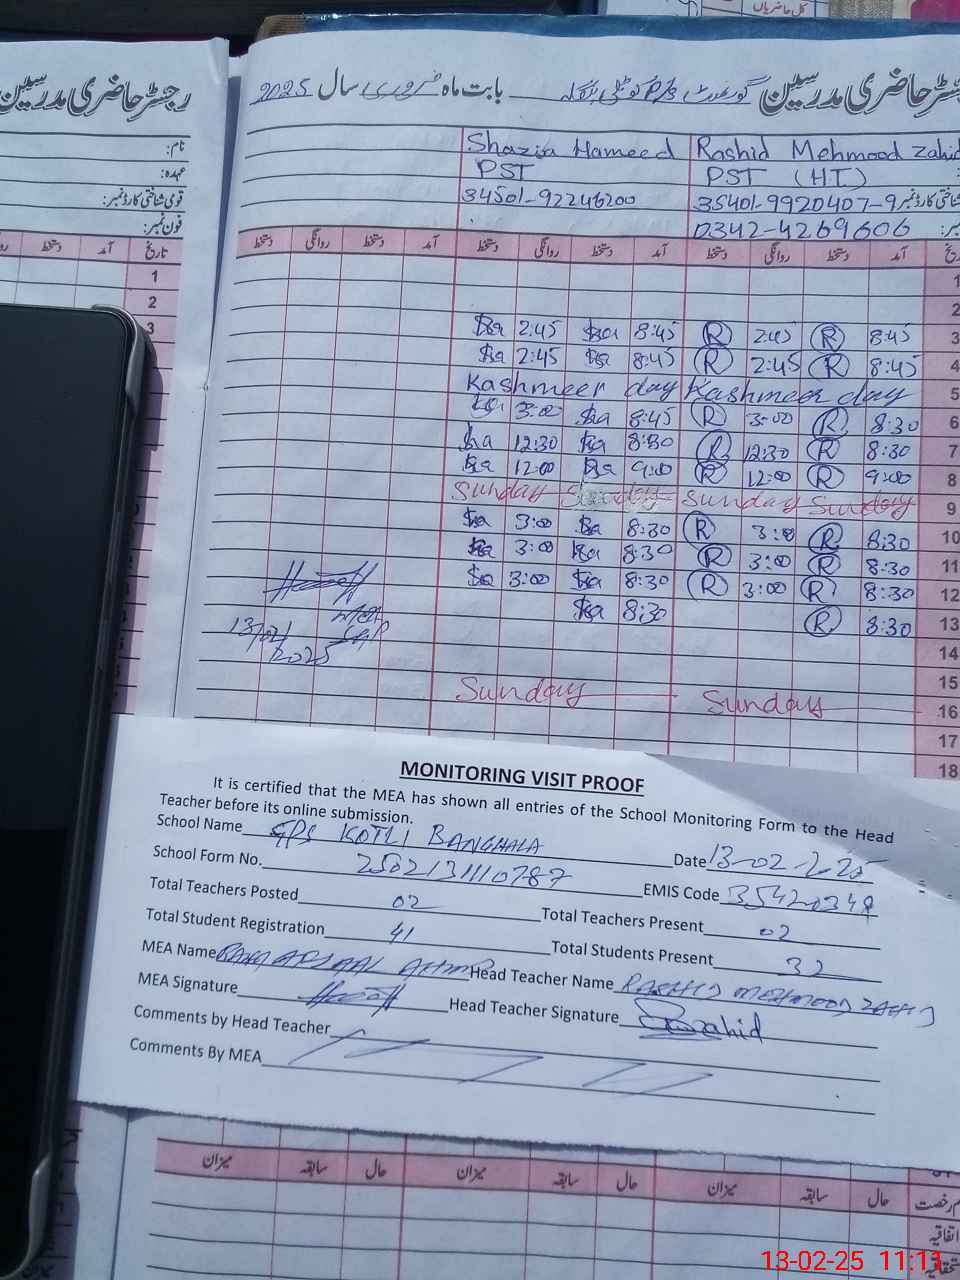 کل حاضریاں
رجسٹر حاضری مدرسین
رجسٹر حاضری مدرسین گورنمنٹ P/S کوٹلی بنگلہ بابت ماہ فروری سال 2025
نام:
عہدہ:
قومی شناختی کارڈ نمبر:
فون نمبر:
Shazia Hameed Rashid Mehmood Zahid
PST PST (H.T)
34501-92246200 35401-9920407-9
0342-4269606
تاریخ آمد دستخط
آمد دستخط روانگی دستخط آمد دستخط روانگی دستخط آمد دستخط روانگی دستخط
1
2
3
1
2
Sha 2:45 Sha 8:45 R 2:45 R 8:45 3
Sha 2:45 Sha 8:45 R 2:45 R 8:45 4
Kashmeer day Kashmeer day 5
Sha 3:00 Sha 8:45 R 3:00 R 8:30 6
Sha 12:30 Sha 8:30 R 12:30 R 8:30 7
Sha 12:00 Sha 9:00 R 12:00 R 9:00 8
Sunday Sunday Sunday Sunday 9
Sha 3:00 Sha 8:30 R 3:00 R 8:30 10
Sha 3:00 Sha 8:30 R 3:00 R 8:30 11
Sha 3:00 Sha 8:30 R 3:00 R 8:30 12
Sha 8:30 R 8:30 13
MEA
13/02/
2025
14
15
Sunday Sunday 16
17
18
MONITORING VISIT PROOF
It is certified that the MEA has shown all entries of the School Monitoring Form to the Head
Teacher before its online submission.
School Name GPS KOTLI BANGHALA Date 13-02-2025
School Form No. 2502131110787 EMIS Code 35420348
Total Teachers Posted 02 Total Teachers Present 02
Total Student Registration 41 Total Students Present 32
MEA Name Head Teacher Name RASHID MEHMOOD ZAHID
MEA Signature Head Teacher Signature Zahid
Comments by Head Teacher
Comments By MEA
حال سابقہ میزان حال سابقہ میزان حال سابقہ میزان
رخصت
اتفاقیہ
13-02-25 11:11